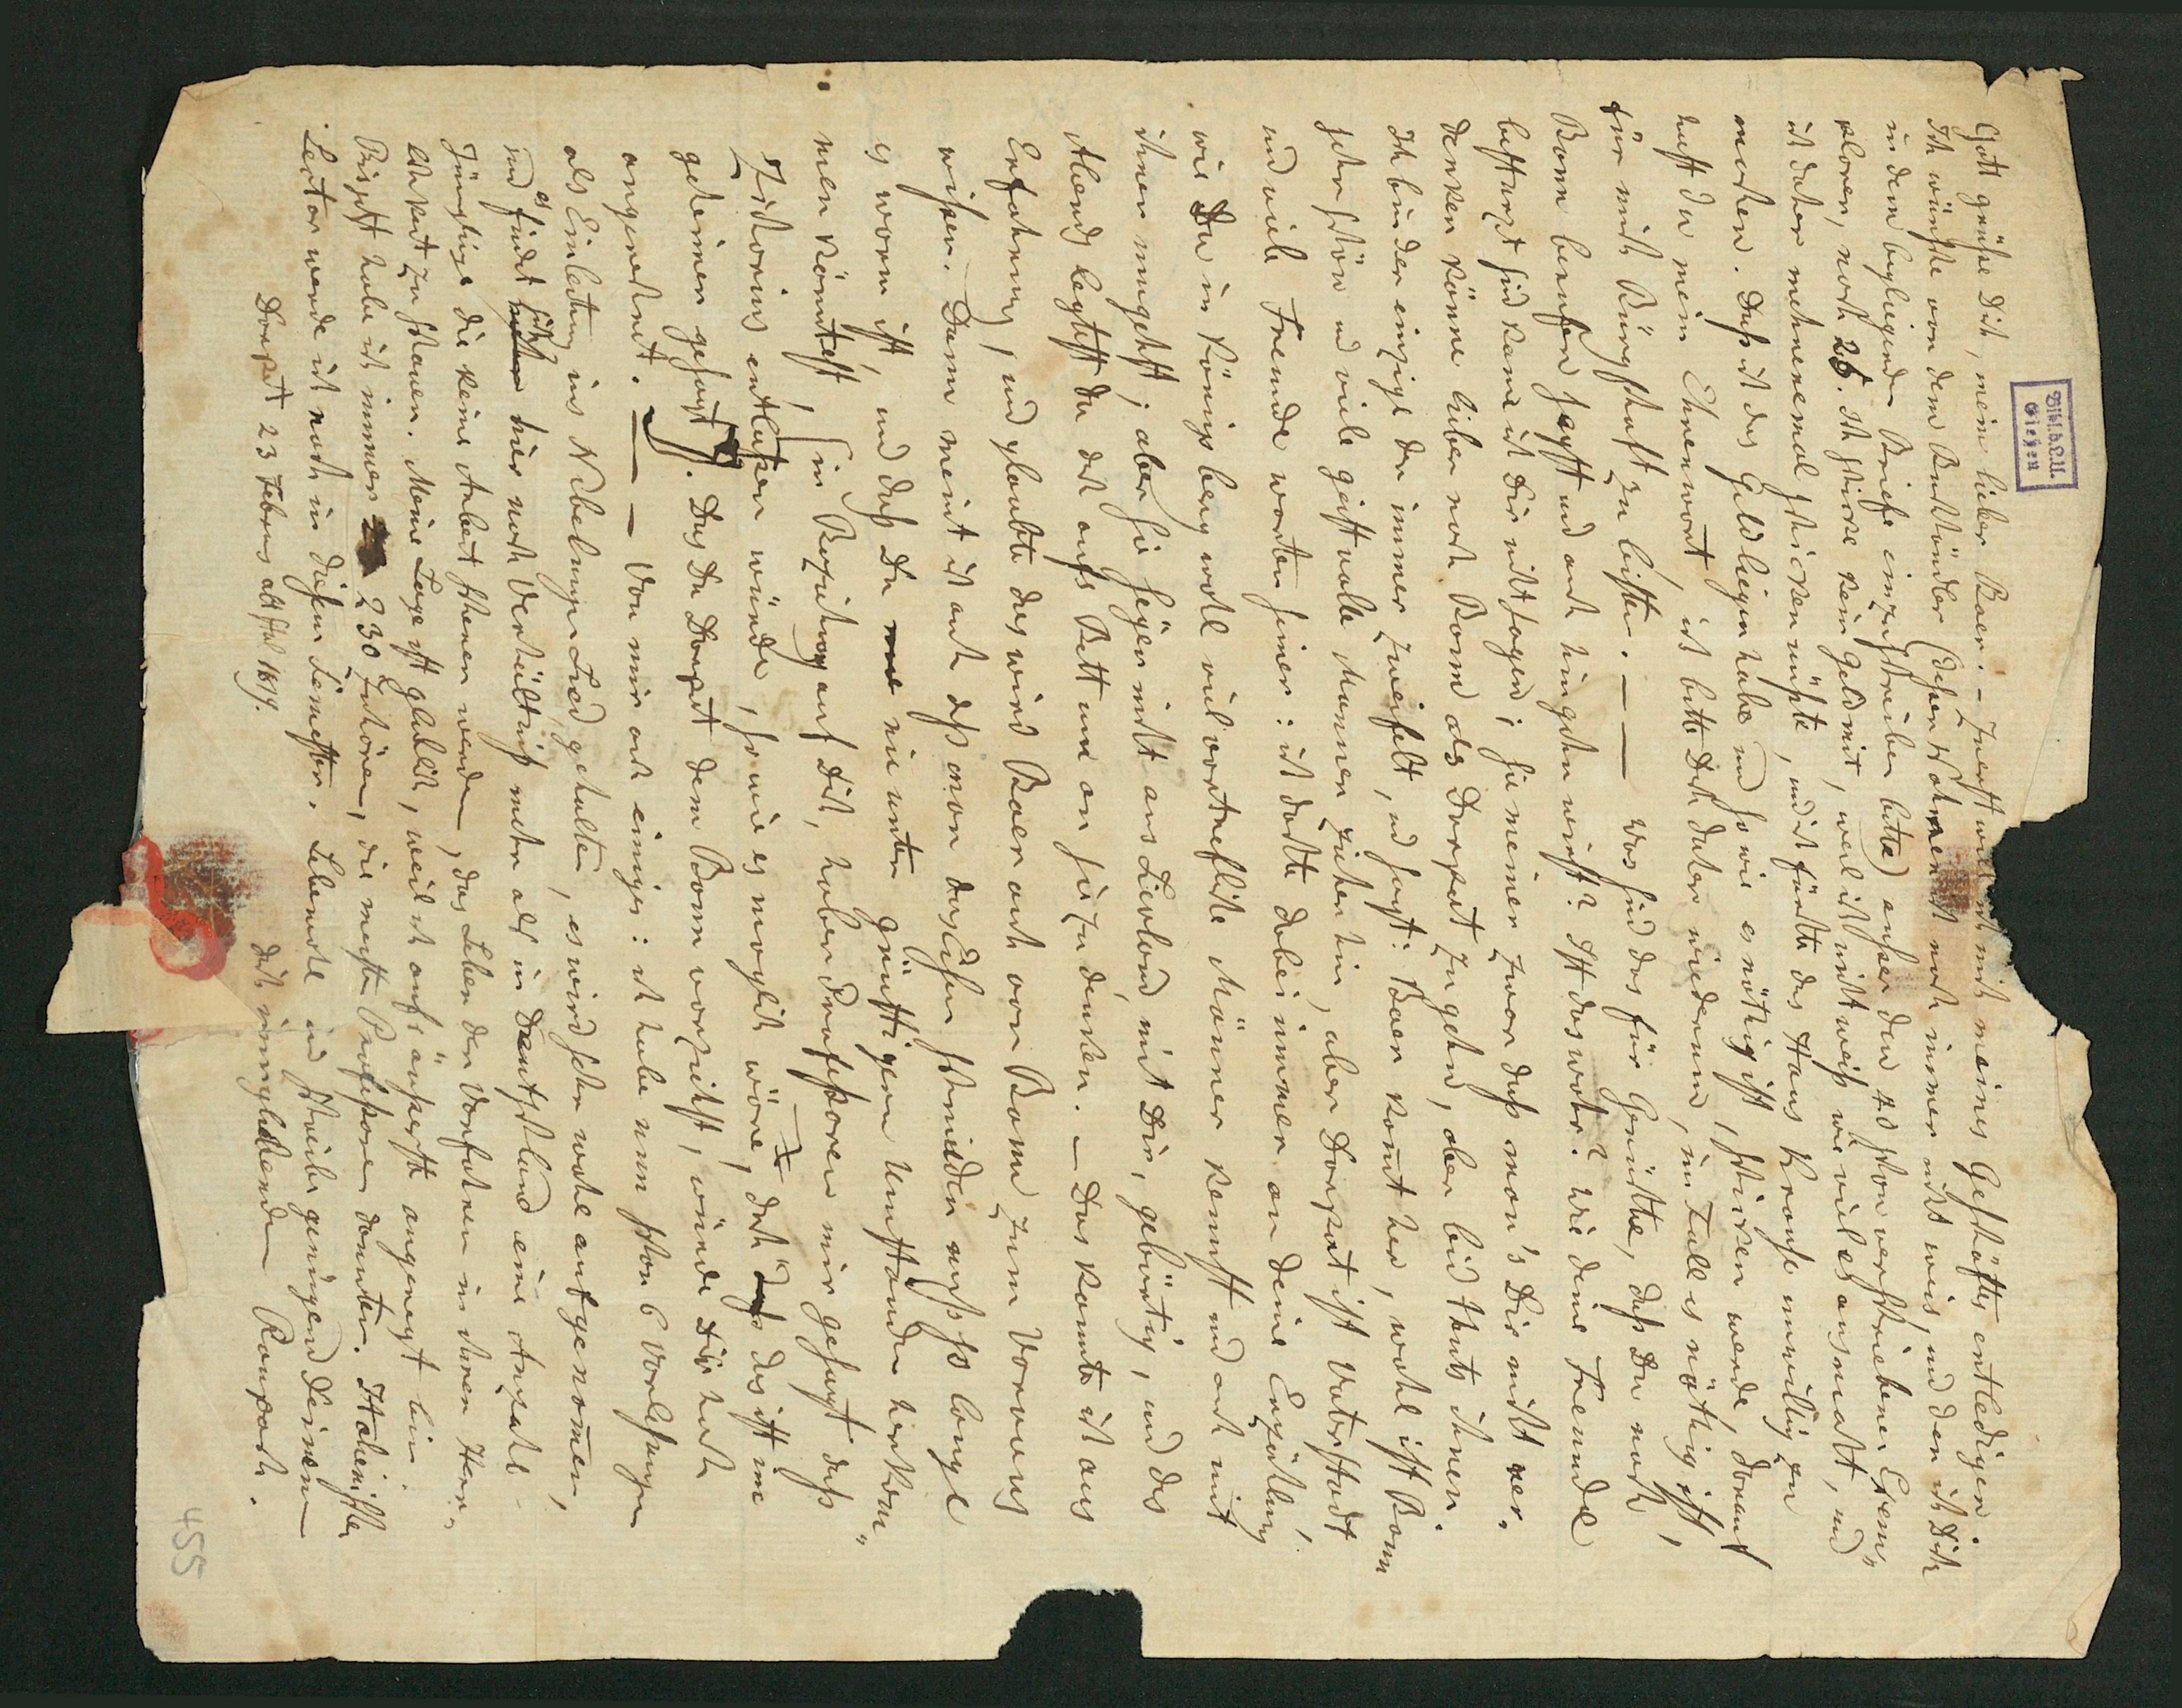 Bibl. d. L. U.
Gießen
Gott grüße Dich, mein lieber Baer! – Zuerst will ich mich meines Geschäftes entledigen.
Ich wünschte von dem Buchhändler (dessen Nahmen ich noch immer nicht weis, und den ich Dich
in dem beyliegenden Briefe einzuschreiben bitte) außer den 40 schon verschriebenen Exem-
plaren, noch 26. Ich schicke kein Geld mit, weil ich nicht weiß wie viel es ausmacht, und
ich daher mehreremal schicken müßte, und ich fürchte das Haus Krause unwillig zu
machen. Daß ich das Geld liegen habe und so wie es nöthig ist, schicken werde, darauf
hast du mein Ehrenwort, ich bitte Dich daher wiederum, im Fall es nöthig ist,
für mich Bürgschaft zu leisten. — — Was sind das für Gerüchte, daß Du nach
Bonn berufen seyst und auch hingehn wirst? Ist das wahr? Wie deine Freunde
bestürzt sind kann ich Dir nicht sagen; sie meinen zwar daß man's Dir nicht ver-
denken könne lieber nach Bonn als Dorpat zu gehn, aber leid thuts ihnen.
Ich bin der einzige der immer zweifelt, und sagt: Baer komt her, wohl ist Bonn
sehr schön und viele geistvolle Männer ziehen hin, aber Dorpat ist Vaterstadt
und viele Freunde warten seiner: ich dachte dabei immer an deine Erzählung
wie Du in Königsberg wohl viel vortrefliche Männer kennst und auch mit
ihnen umgehst; aber sie seyen nicht aus Liefland, mit Dir, gebürtig, und des
Abends legtest du dich aufs Bett um an sie zu denken. – Das kannte ich aus
Erfahrung, und glaubte das wird Baer auch von Bonn zum Voraus
wissen. Dann meint ich auch daß man das Eisen schmieden muß so lange
es warm ist, und daß Du nie unter günstigern Umständen herkom-
men könntest, in Beziehung auf Dich, haben Professoren mir gesagt daß
Zichorius entlaßen würde, so wie es möglich wäre, doch das ist im
geheimen gesagt. Daß Du Dorpat dem Bonn vorziehst, würde Dir hoch
angerechnet. — — Von mir auch einiges: ich habe nun schon 6 Vorlesungen
als Einleitung ins Nibelunge-Lied gehalten, es wird sehr wohl aufgenommen,
und es findet sich hier nach Verhältniß mehr als in Deutschland eine Anzahl
Jünglinge die keine Arbeit scheuen werden, das Leben der Vorfahren in ihrer Herr-
lichkeit zu schauen. Meine Lage ist glücklich, weil ich aufs äußerste angeregt bin.
Bis jetzt habe ich immer 230 Zuhörer, die meisten Professoren darunter. Italienischer
Lector werde ich noch in diesem Semester. Lebewohl und schreibe genügend Deinem
Dorpat 23 Febr. alt Styl 1819.
Dich innigliebenden Raupach.
455